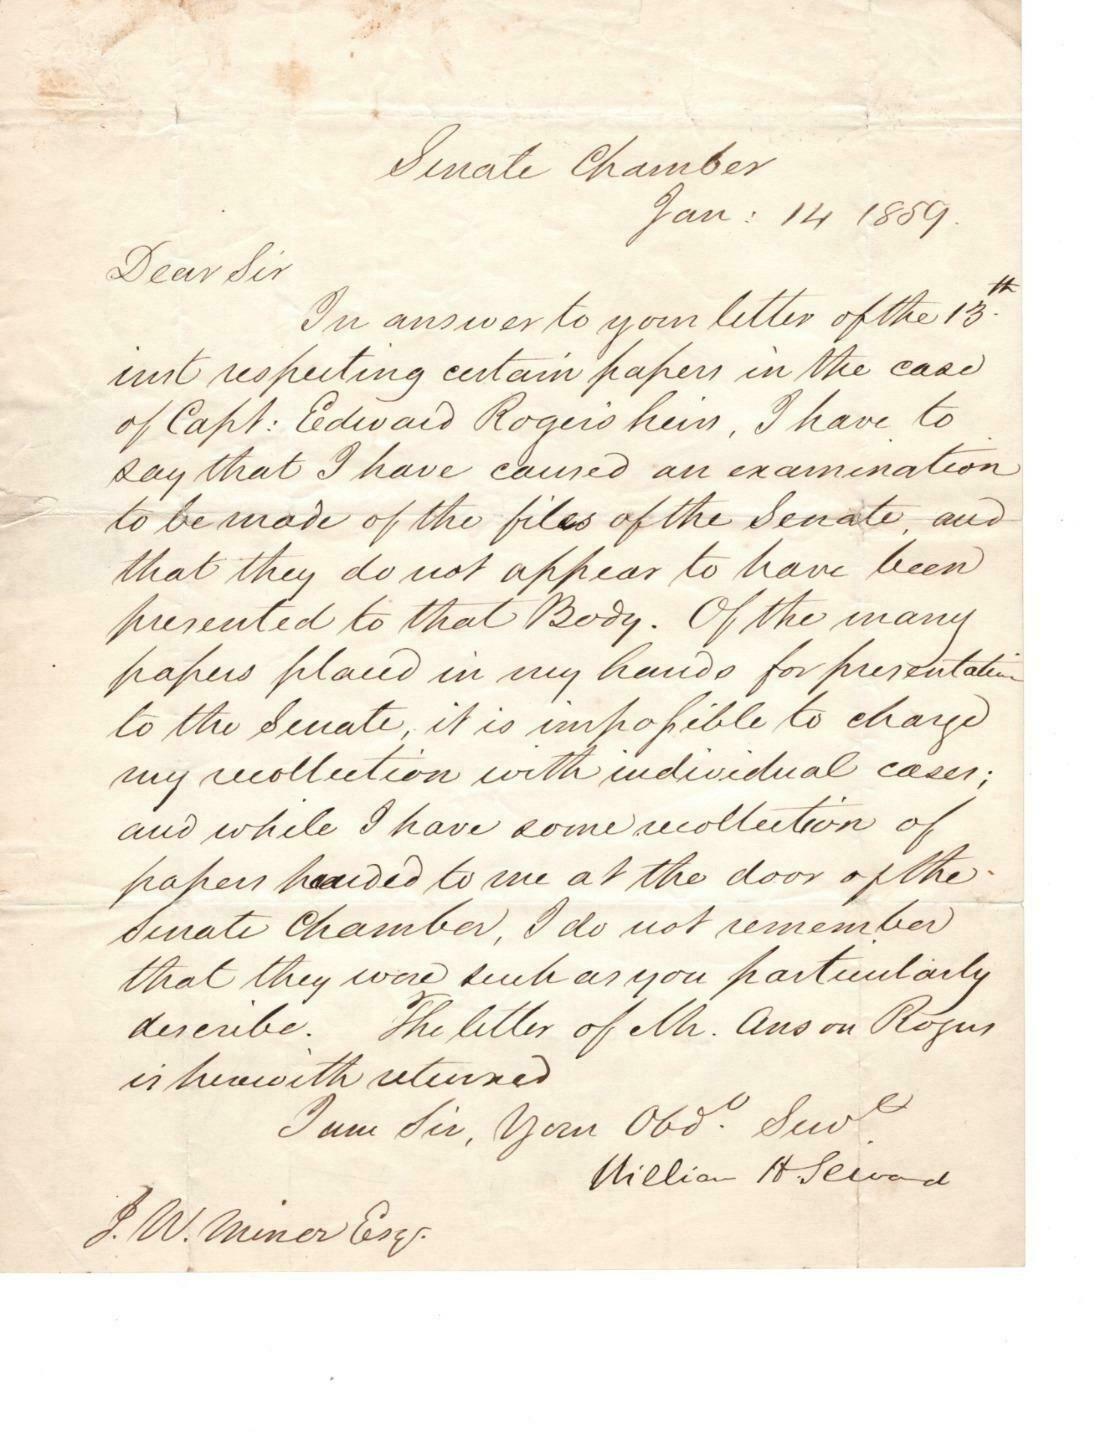 Senate Chamber
Jan: 14 1859.
Dear Sir
In answer to your letter of the 13th
inst respecting certain papers in the case
of Capt: Edward Rogers heirs, I have to
say that I have caused an examination
to be made of the files of the Senate, and
that they do not appear to have been
presented to that Body. Of the many
papers placed in my hands for presentation
to the Senate, it is impossible to charge
my recollection with individual cases;
and while I have some recollection of
papers handed to me at the door of the
Senate Chamber, I do not remember
that they were such as you particularly
describe. The letter of Mr. Anson Rogers
is herewith returned
I am Sir, Your Obdt. Servt.
William H Seward
J. W. Miner Esqr.